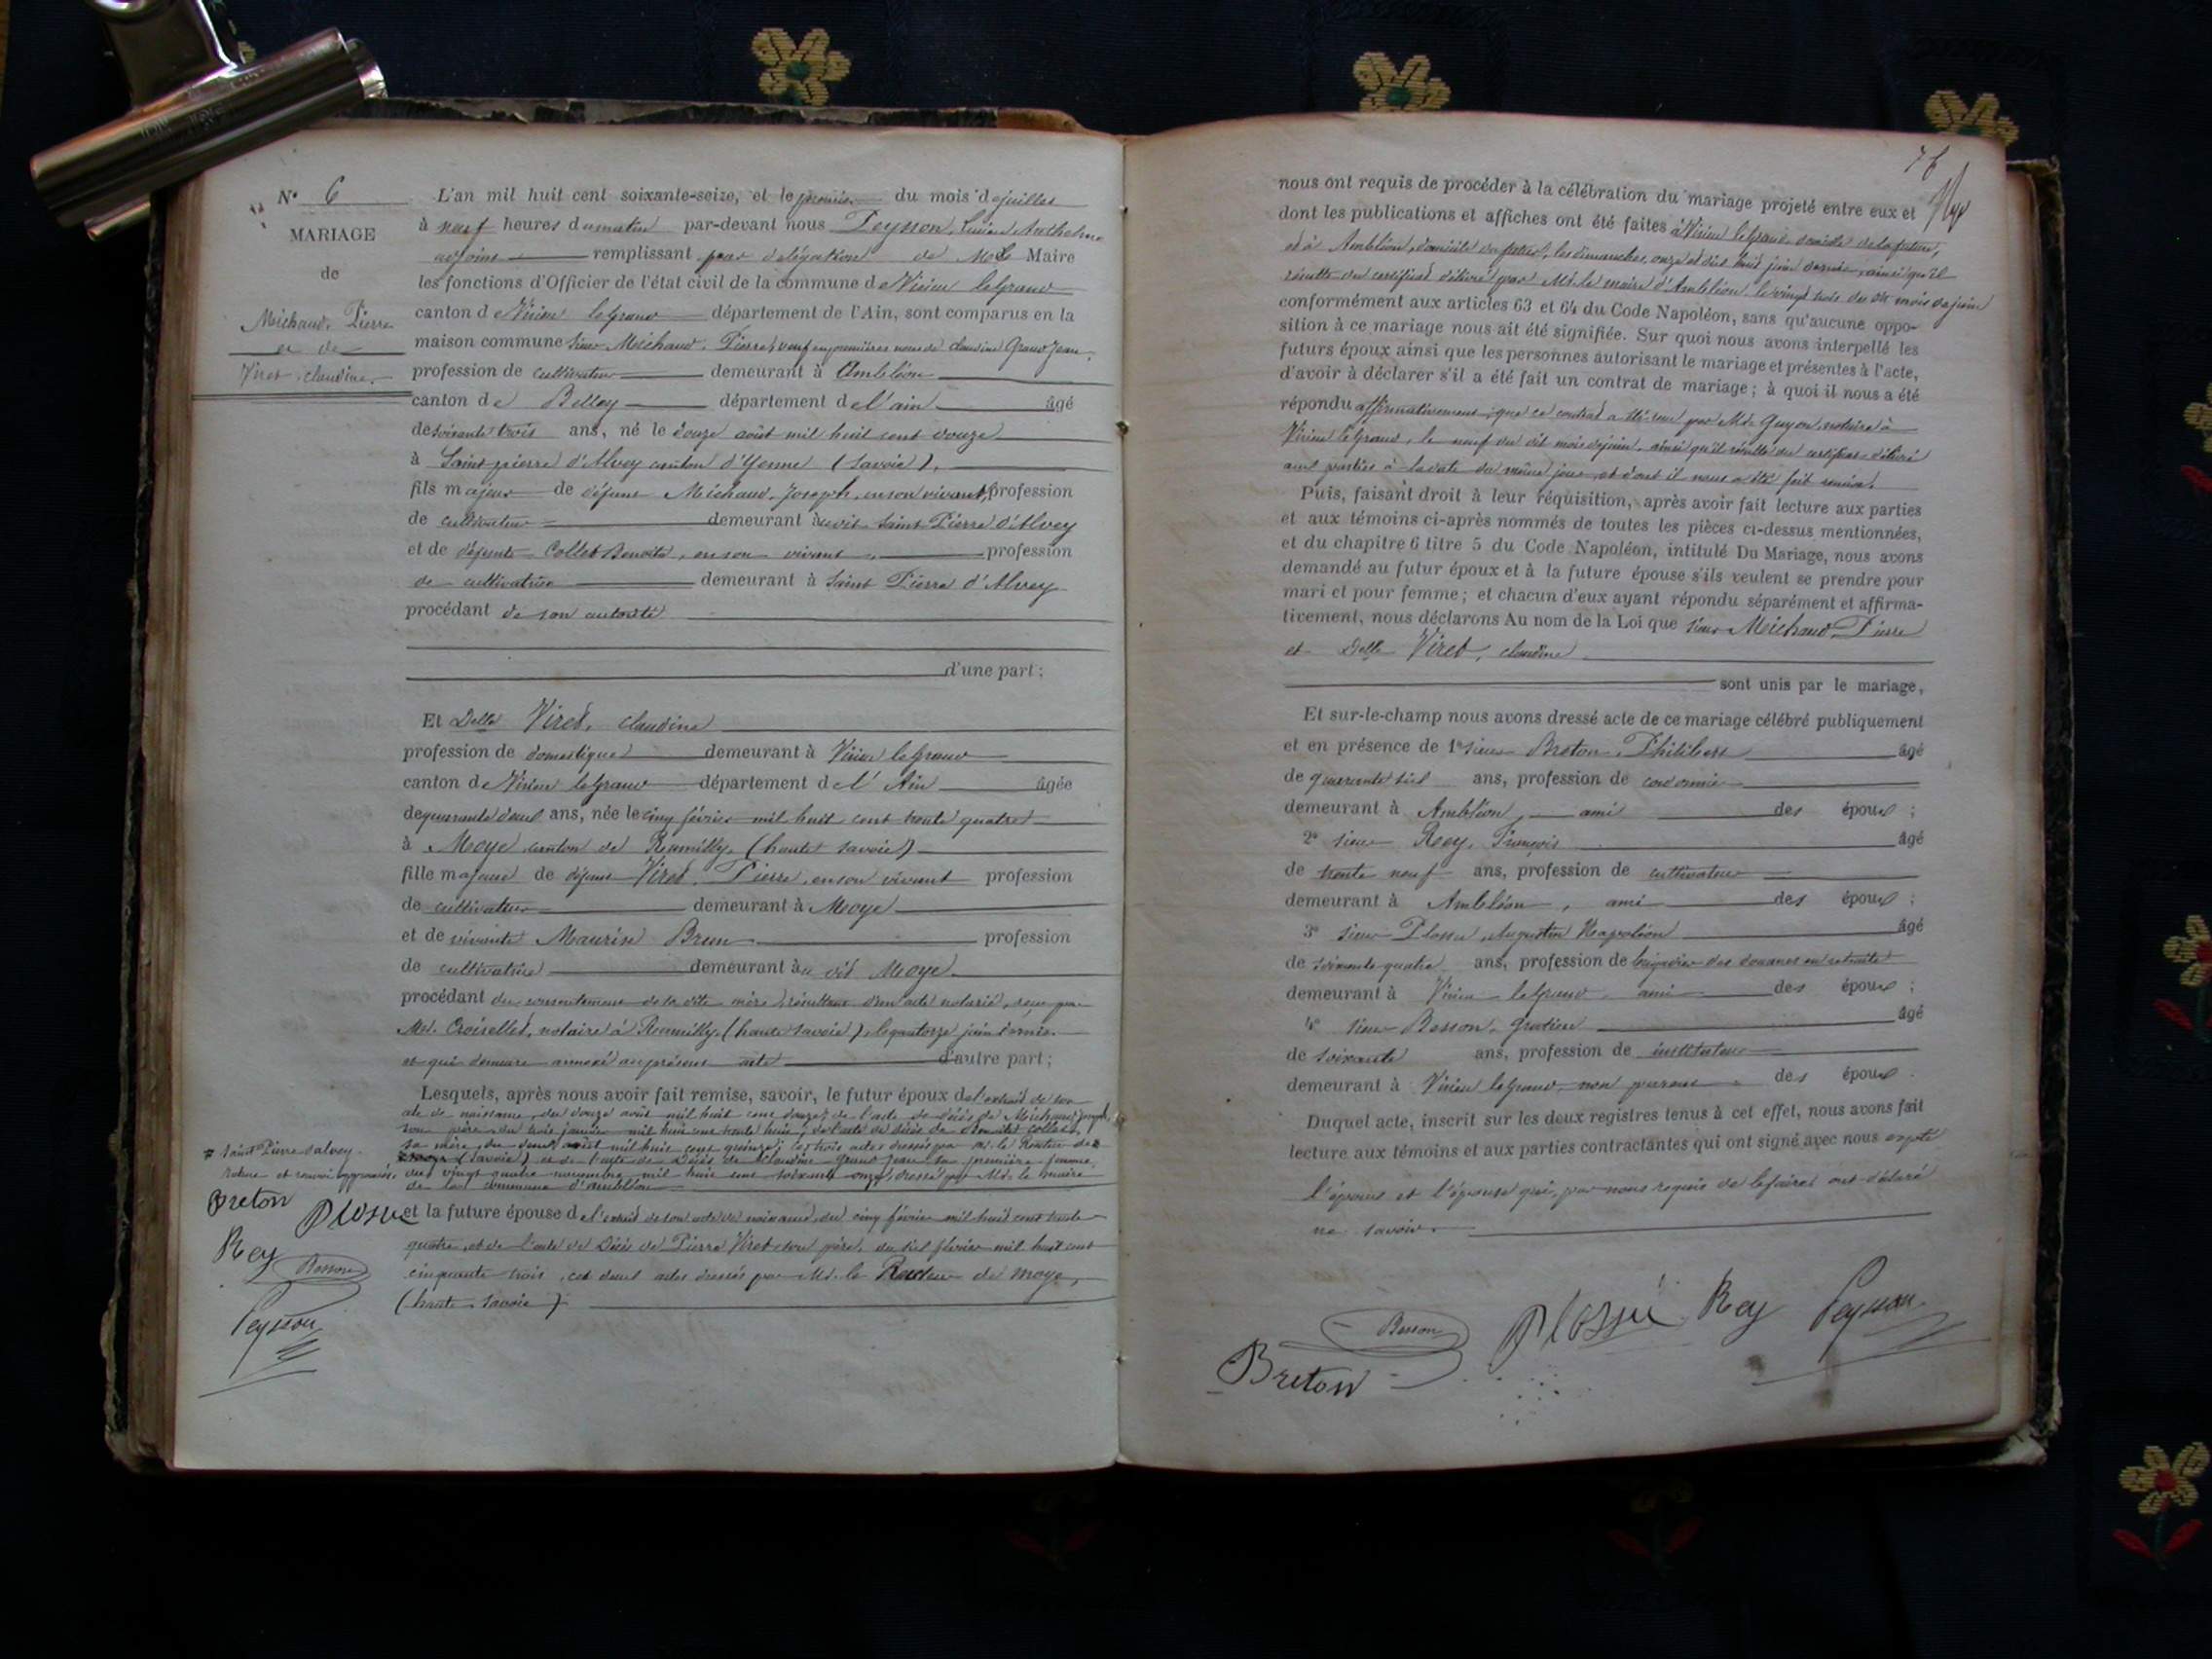 N° 6
MARIAGE
de
Michaud, Pierre
et de
Viret, claudine.
L'an mil huit cent soixante-seize, et le premier du mois de juillet
à neuf heures du matin par-devant nous Peysson, Anthelme
adjoint remplissant par délégation de Mr le Maire
les fonctions d'Officier de l'état civil de la commune de Virieu le grand
canton de Virieu le grand département de l'Ain, sont comparus en la
maison commune sieur Michaud, Pierre, veuf en premières noces de claudine Grand Jean,
profession de cultivateur demeurant à Ambléon
canton de Belley département de l'ain âgé
de soixante trois ans, né le douze août mil huit cent douze
à Saint pierre d'Alvey canton d'Yenne (Savoie),
fils majeur de défunt Michaud, Joseph, en son vivant, profession
de cultivateur demeurant au dit Saint Pierre d'Alvey
et de défunte Collet Benoite, en son vivant, profession
de cultivatrice demeurant à Saint Pierre d'Alvey
procédant de son autorité
d'une part;
Et Delle Viret, claudine
profession de domestique demeurant à Virieu le grand
canton de Virieu le grand département de l'Ain âgée
de quarante deux ans, née le cinq février mil huit cent trente quatre
à Moye canton de Rumilly, (haute savoie)
fille majeure de défunt Viret, Pierre, en son vivant profession
de cultivateur demeurant à Moye
et de vivante Maurise Brun profession
de cultivatrice demeurant au dit Moye.
procédant du consentement de la dite mère, résultant d'un acte notarié, reçu par
Me. Croisollet, notaire à Rumilly, (haute savoie), le quatorze juin dernier
et qui demeure annexé au présent acte d'autre part;
Lesquels, après nous avoir fait remise, savoir, le futur époux de l'extrait de son
acte de naissance, du douze août mil huit cent douze; de l'acte de décès de Michaud Joseph,
son père, du trois janvier mil huit cent trente huit; de l'acte de décès de Benoite Collet,
sa mère, du deux août mil huit cent quinze; ces trois actes dressés par Mr. le Recteur de #
(Savoie) et de l'acte de Décès de Claudine Grand Jean sa première femme,
du vingt quatre novembre mil huit cent soixante onze, dressé par Mr. le maire
de la commune d'ambléon
# Saint Pierre d'alvey.
rature et renvoi approuvés.
Breton
Plossu
Rey
Besson
Peysson
et la future épouse de l'extrait de son acte de naissance, du cinq février mil huit cent trente
quatre, et de l'acte de Décès de Pierre Viret son père, du six février mil huit cent
cinquante trois, ces deux actes dressés par Mr. le Recteur de Moye,
(haute Savoie)
76
nous ont requis de procéder à la célébration du mariage projeté entre eux et
dont les publications et affiches ont été faites à Virieu le grand, domicile de la future,
et à Ambléon, domicile du futur, les dimanches, onze et dix huit juin dernier, ainsi qu'il
résulte du certificat délivré par Mr. le maire d'Ambléon, le vingt trois du dit mois de juin
conformément aux articles 63 et 64 du Code Napoléon, sans qu'aucune oppo-
sition à ce mariage nous ait été signifiée. Sur quoi nous avons interpellé les
futurs époux ainsi que les personnes autorisant le mariage et présentes à l'acte,
d'avoir à déclarer s'il a été fait un contrat de mariage; à quoi il nous a été
répondu affirmativement, que ce contrat a été reçu par Me. Guyon, notaire à
Virieu le grand, le neuf du dit mois de juin, ainsi qu'il résulte du certificat délivré
aux parties à la date du même jour, et dont il nous a été fait remise.
Puis, faisant droit à leur réquisition, après avoir fait lecture aux parties
et aux témoins ci-après nommés de toutes les pièces ci-dessus mentionnées,
et du chapitre 6 titre 5 du Code Napoléon, intitulé Du Mariage, nous avons
demandé au futur époux et à la future épouse s'ils veulent se prendre pour
mari et pour femme; et chacun d'eux ayant répondu séparément et affirma-
tivement, nous déclarons Au nom de la Loi que sieur Michaud, Pierre
et Delle Viret, claudine
sont unis par le mariage,
Et sur-le-champ nous avons dressé acte de ce mariage célébré publiquement
et en présence de 1° sieur Breton, Philibert âgé
de quarante six ans, profession de cordonnier
demeurant à Ambléon, ami des époux;
2° sieur Rey, François âgé
de trente neuf ans, profession de cultivateur
demeurant à Ambléon, ami des époux;
3° sieur Plossu, Augustin Napoléon âgé
de soixante-quatre ans, profession de brigadier des douanes en retraite
demeurant à Virieu le grand ami des époux;
4° sieur Besson, Gratien âgé
de soixante ans, profession de instituteur
demeurant à Virieu le grand non parent des époux.
Duquel acte, inscrit sur les deux registres tenus à cet effet, nous avons fait
lecture aux témoins et aux parties contractantes qui ont signé avec nous excepté
l'époux et l'épouse qui, par nous requis de le faire, ont déclaré
ne savoir.
Besson
Plossu
Rey
Peysson
Breton